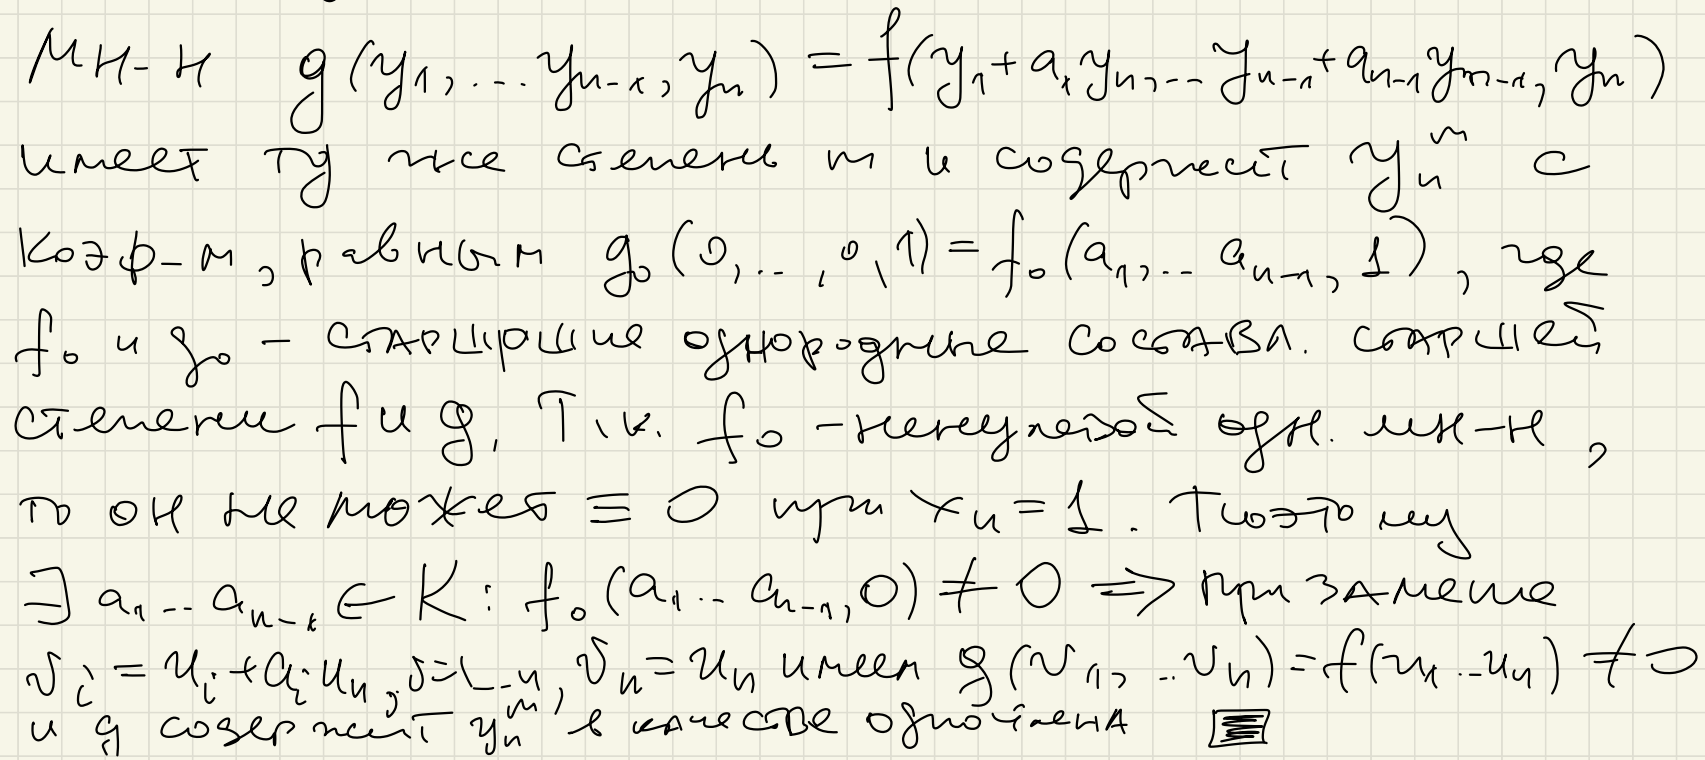 мн-н g(y₁,...y_{n-1}, y_n) = f(y₁+a₁y_n,... y_{n-1}+a_{n-1}y_{n-1}, y_n)
имеет ту же степень m и содержит y_n^m с
коэф-м, равным g₀(0,..,0,1) = f₀(a₁,.. a_{n-1}, 1), где
f₀ и g₀ - старшршие однородные составл. старшей
степени f и g. Т.к. f₀ - ненулевой одн. мн-н,
то он не может ≡ 0 при x_n = 1. Поэтому
∃ a₁..a_{n-1} ∈ K: f₀(a₁.. a_{n-1}, 0) ≠ 0 ⇒ при замене
v_i = u_i + a_i u_n, v_n = u_n имеем g(v₁, ..v_n) = f(u₁..u_n) ≠ 0
и g содержит y_n^m в качестве одночлена